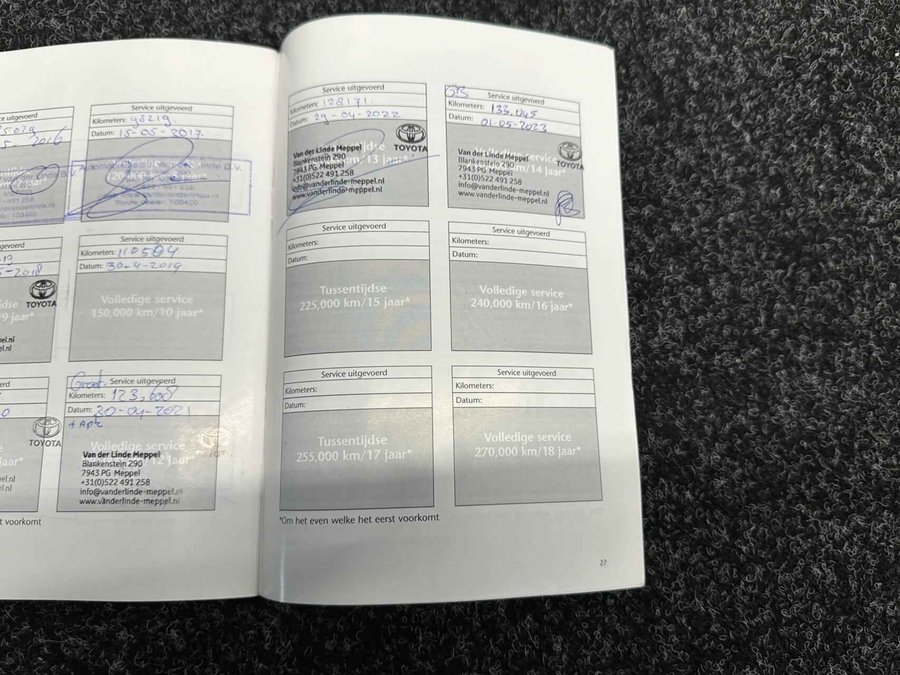 Service uitgevoerd
Kilometers: 95219
Datum: 15-05-2017
Service uitgevoerd
Kilometers: 110504
Datum: 30-4-2019
Volledige service
150,000 km/10 jaar*
TOYOTA
/9 jaar*
Groot Service uitgevoerd
Kilometers: 123.608
Datum: 20-04-2021
+ APK
Volledige service
12 jaar*
Van der Linde Meppel
Blankenstein 290
7943 PG Meppel
+31(0)522 491 258
info@vanderlinde-meppel.nl
www.vanderlinde-meppel.nl
TOYOTA
t voorkomt
Service uitgevoerd
Kilometers: 128171
Datum: 29-04-2022
km/13 jaar*
TOYOTA
Van der Linde Meppel
Blankenstein 290
7943 PG Meppel
+31(0)522 491 258
info@vanderlinde-meppel.nl
www.vanderlinde-meppel.nl
GB Service uitgevoerd
Kilometers: 133.045
Datum: 01-05-2023
Volledige service
km/14 jaar*
TOYOTA
Van der Linde Meppel
Blankenstein 290
7943 PG Meppel
+31(0)522 491 258
info@vanderlinde-meppel.nl
www.vanderlinde-meppel.nl
Service uitgevoerd
Kilometers:
Datum:
Tussentijdse
225,000 km/15 jaar*
Service uitgevoerd
Kilometers:
Datum:
Volledige service
240,000 km/16 jaar*
Service uitgevoerd
Kilometers:
Datum:
Tussentijdse
255,000 km/17 jaar*
Service uitgevoerd
Kilometers:
Datum:
Volledige service
270,000 km/18 jaar*
*Om het even welke het eerst voorkomt
27